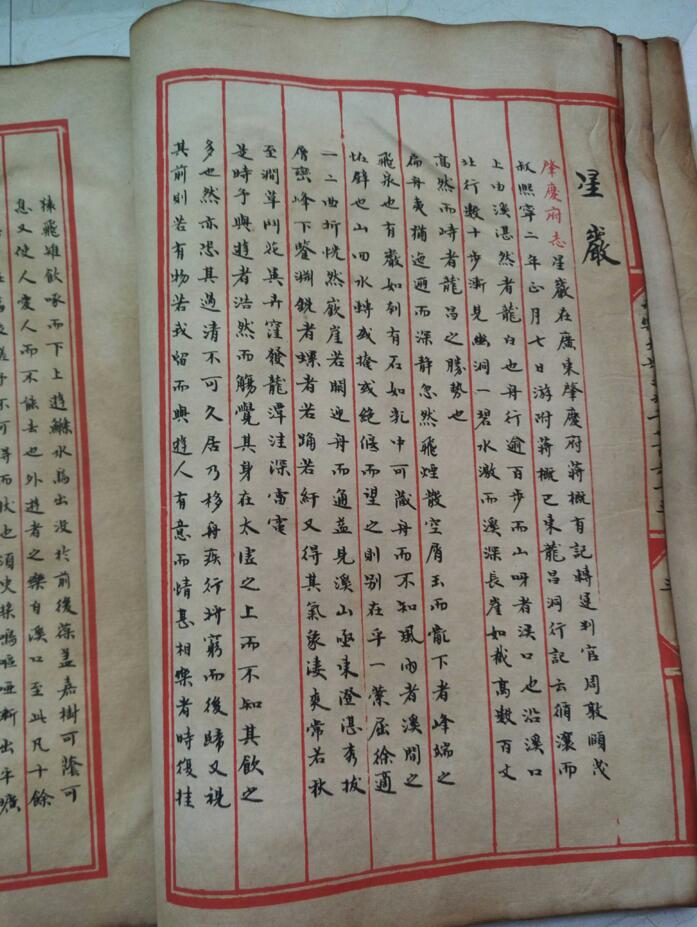 星巖
肇慶府志星巖在廣東肇慶府蔣概有記轉運判官周敦頤茂
叔熈寧二年正月七日游時蔣概已東龍昌洞行記云循瀼而
上由溪湛然者龍臼也舟行逾百步而山呀者溪口也沿溪口
北行數十步漸見幽洞一碧水激而溪深長崖如截高數百丈
髙然而峙者龍昌之勝勢也
扁舟夷猶迤邐而深靜忽然飛煙散空屑玉而霏下者峰端之
飛泉也有巖如列有石如乳中可藏舟而不知風雨者溪間之
怪辟也山回水轉或掩或絶俛而望之則别在乎一縈屈徐適
一二曲折恍然嵌崖若開迎舟而通益見溪山亟東澄湛秀拔
層巒峰下瞥淵銳者螺者若踊若紆又得其氣象淒爽常若秋
至澗草川花異卉窪發龍潭洼深雷電
是時予與遊者浩然而觴覺其身在太虛之上而不知其飲之
多也然亦恐其過清不可久居乃移舟疾行將窮而後歸又視
其前則若有物若我留而與遊人有意而情甚相樂者時復挂
猿飛雉飲啄而下上遊鯈水鳥出没於前後葆盖嘉樹可蔭可
息又使人愛人而不能去也外遊者之樂自溪口至此凡十餘
不可得而狀也須臾猱鳴嘔啞漸出乎曠